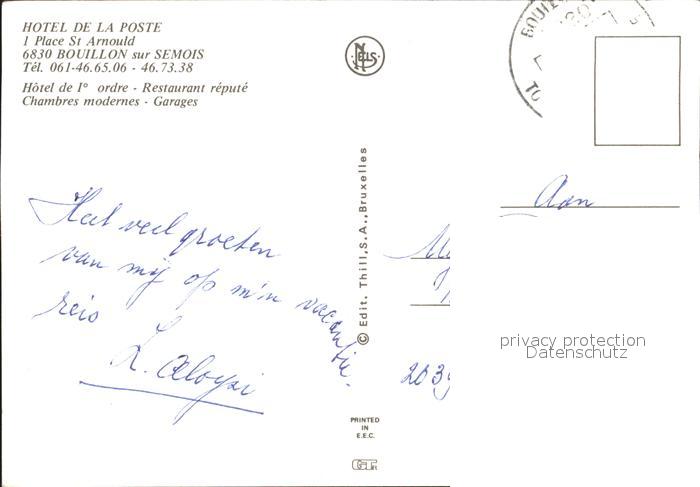 HOTEL DE LA POSTE
1 Place St Arnould
6830 BOUILLON sur SEMOIS
Tél. 061-46.65.06 - 46.73.38
Hôtel de I° ordre - Restaurant réputé
Chambres modernes - Garages
NELS
© Edit. Thill, S.A., Bruxelles
Aan
Heel veel groeten
van mij op m'n vacantie
reis
privacy protection
Datenschutz
PRINTED
IN
E.E.C.